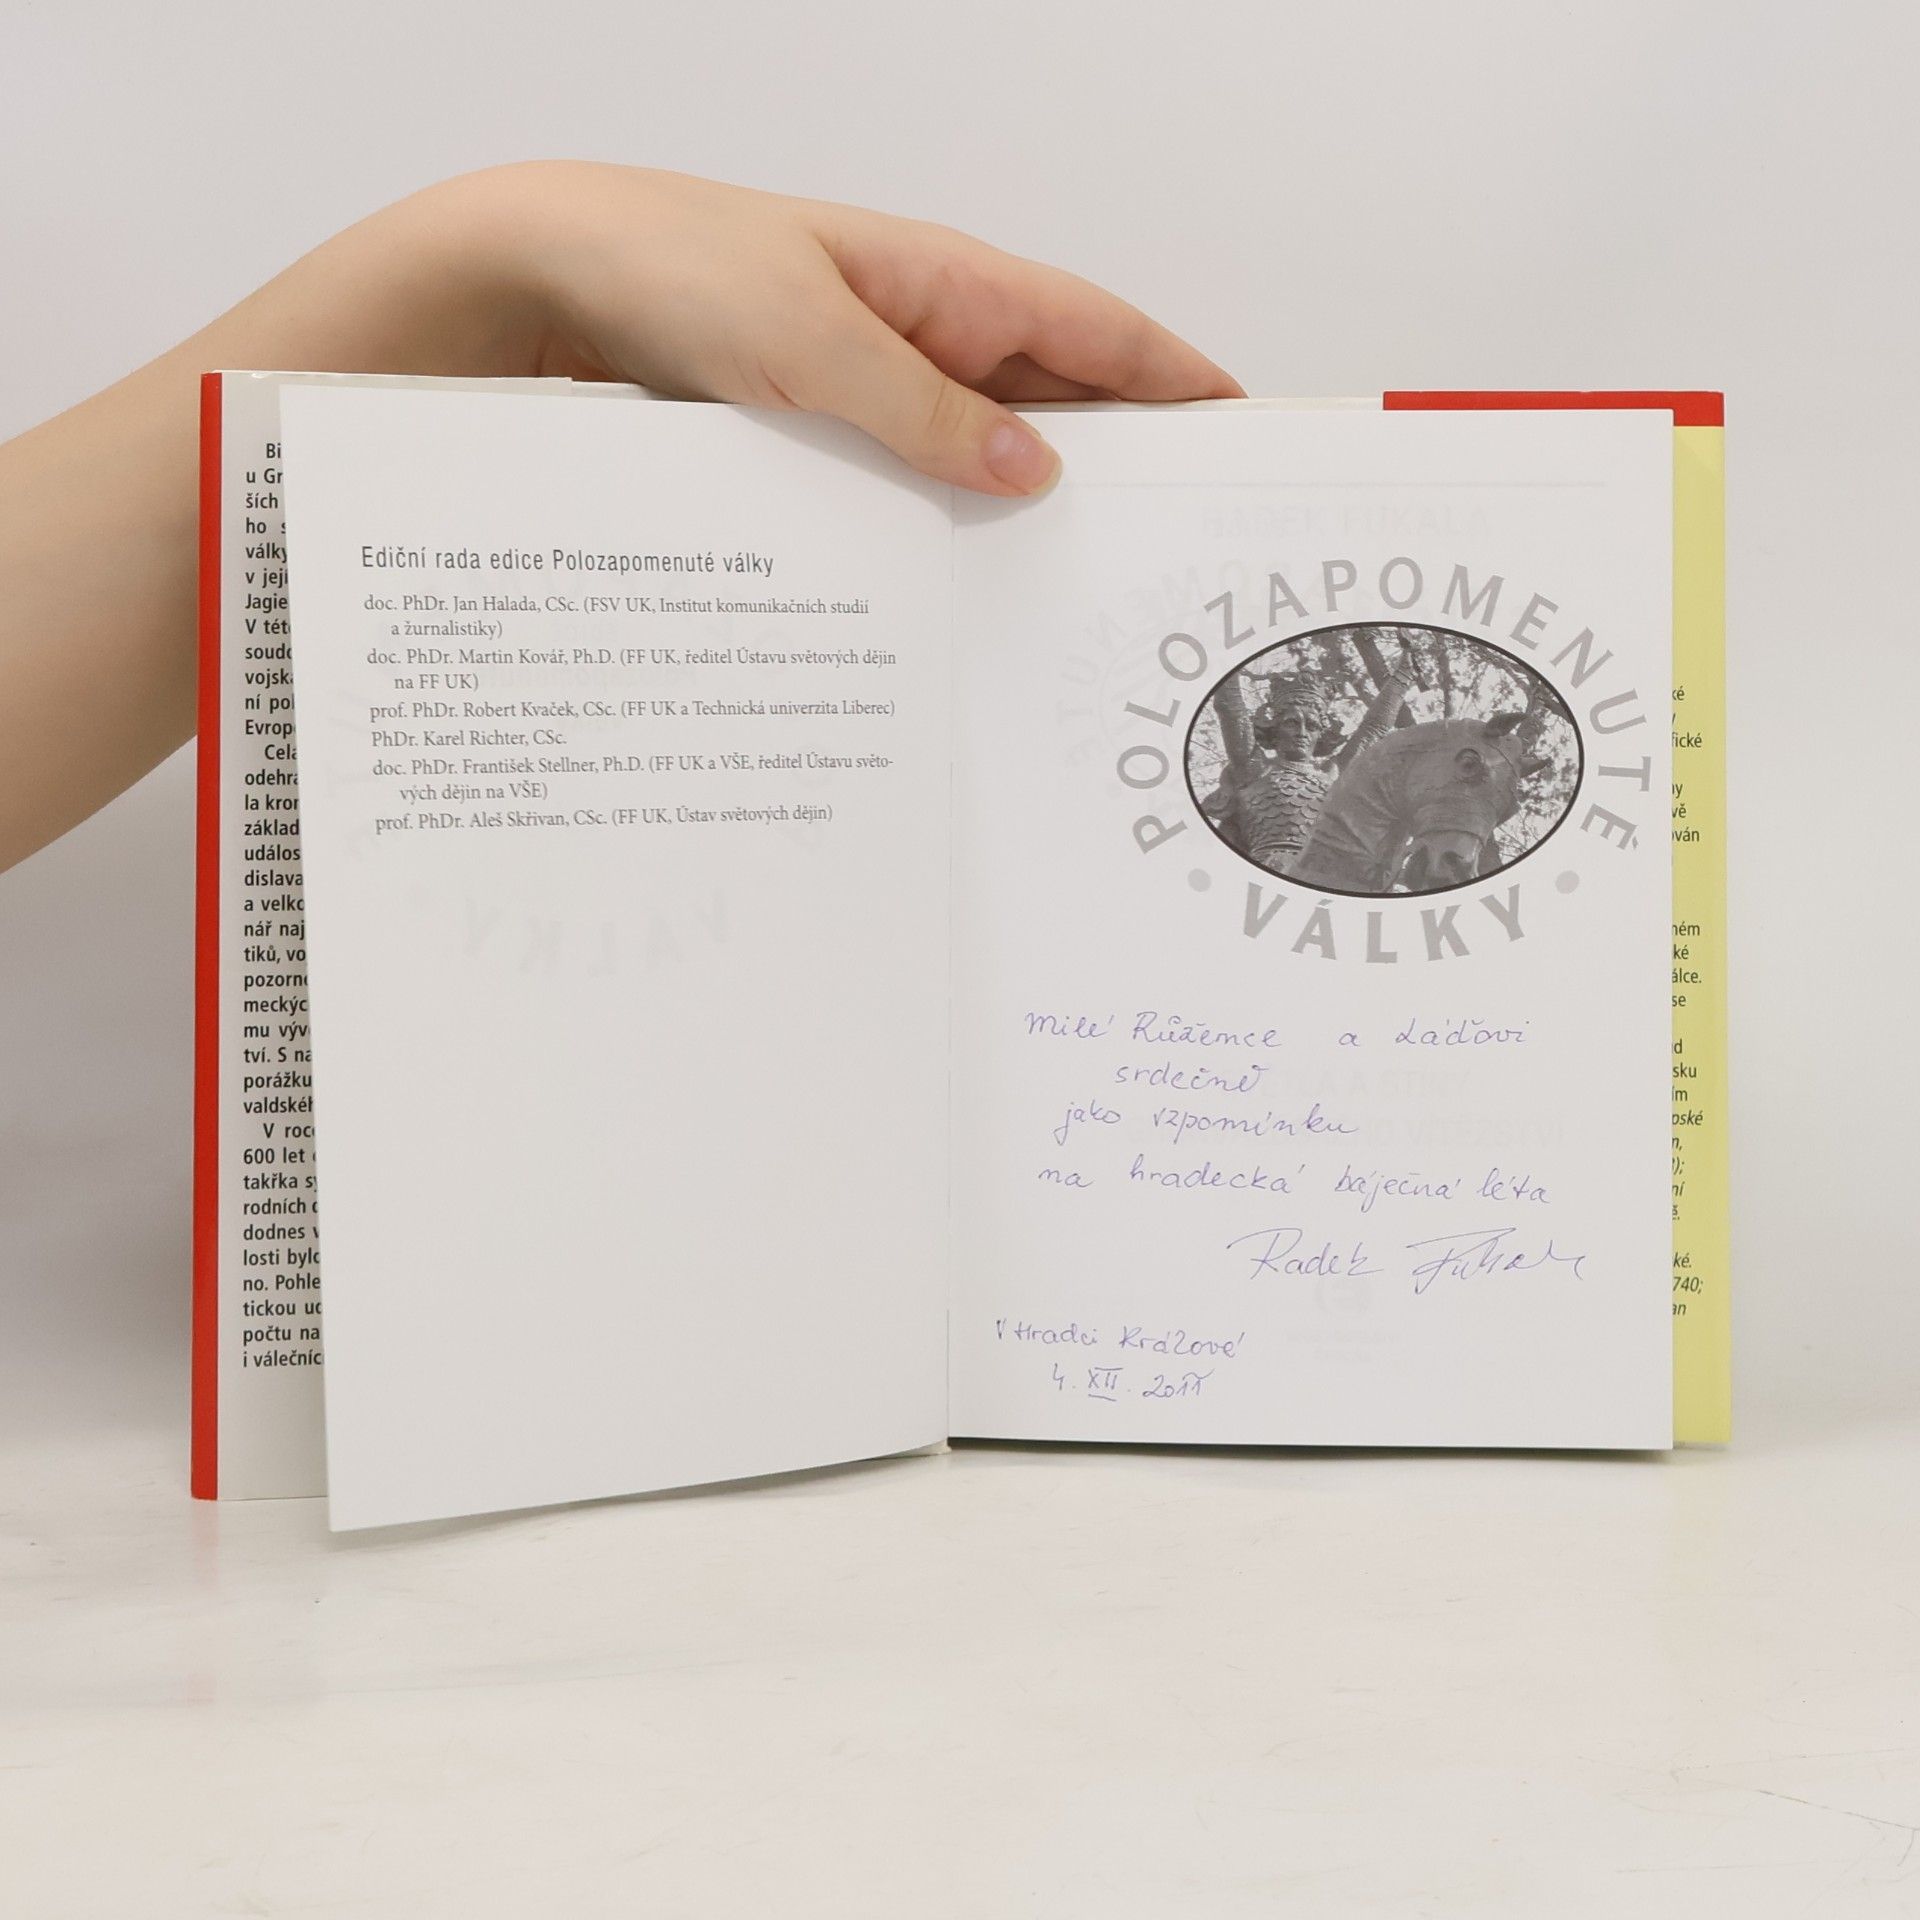 Bi
u Gr
ších
ho s
války
v její
Jagie
V tét
soudo
vojsk
ní pol
Evrop
Cela
odehra
la kron
základ
událos
dislava
a velko
nář naj
tiků, vo
pozorno
meckýc
mu výv
tví. S na
porážku
valdskéh
V roce
600 let
takřka sy
rodních
dodnes v
losti bylo
no. Pohle
tickou ud
počtu na
i válečníc
Ediční rada edice Polozapomenuté války
doc. PhDr. Jan Halada, CSc. (FSV UK, Institut komunikačních studií
a žurnalistiky)
doc. PhDr. Martin Kovář, Ph.D. (FF UK, ředitel Ústavu světových dějin
na FF UK)
prof. PhDr. Robert Kvaček, CSc. (FF UK a Technická univerzita Liberec)
PhDr. Karel Richter, CSc.
doc. PhDr. František Stellner, Ph.D. (FF UK a VŠE, ředitel Ústavu světo-
vých dějin na VŠE)
prof. PhDr. Aleš Skřivan, CSc. (FF UK, Ústav světových dějin)
POLOZAPOMENUTÉ
• VÁLKY •
Milé Růžence a Láďovi
srdečně
jako vzpomínku
na hradecká báječná léta
Radek Fukala
V Hradci Králové
4. XII. 2011
ké
fické
vě
ován
ném
ké
álce.
se
d
sku
ím
pské
n,
);
ní
ké.
740;
an